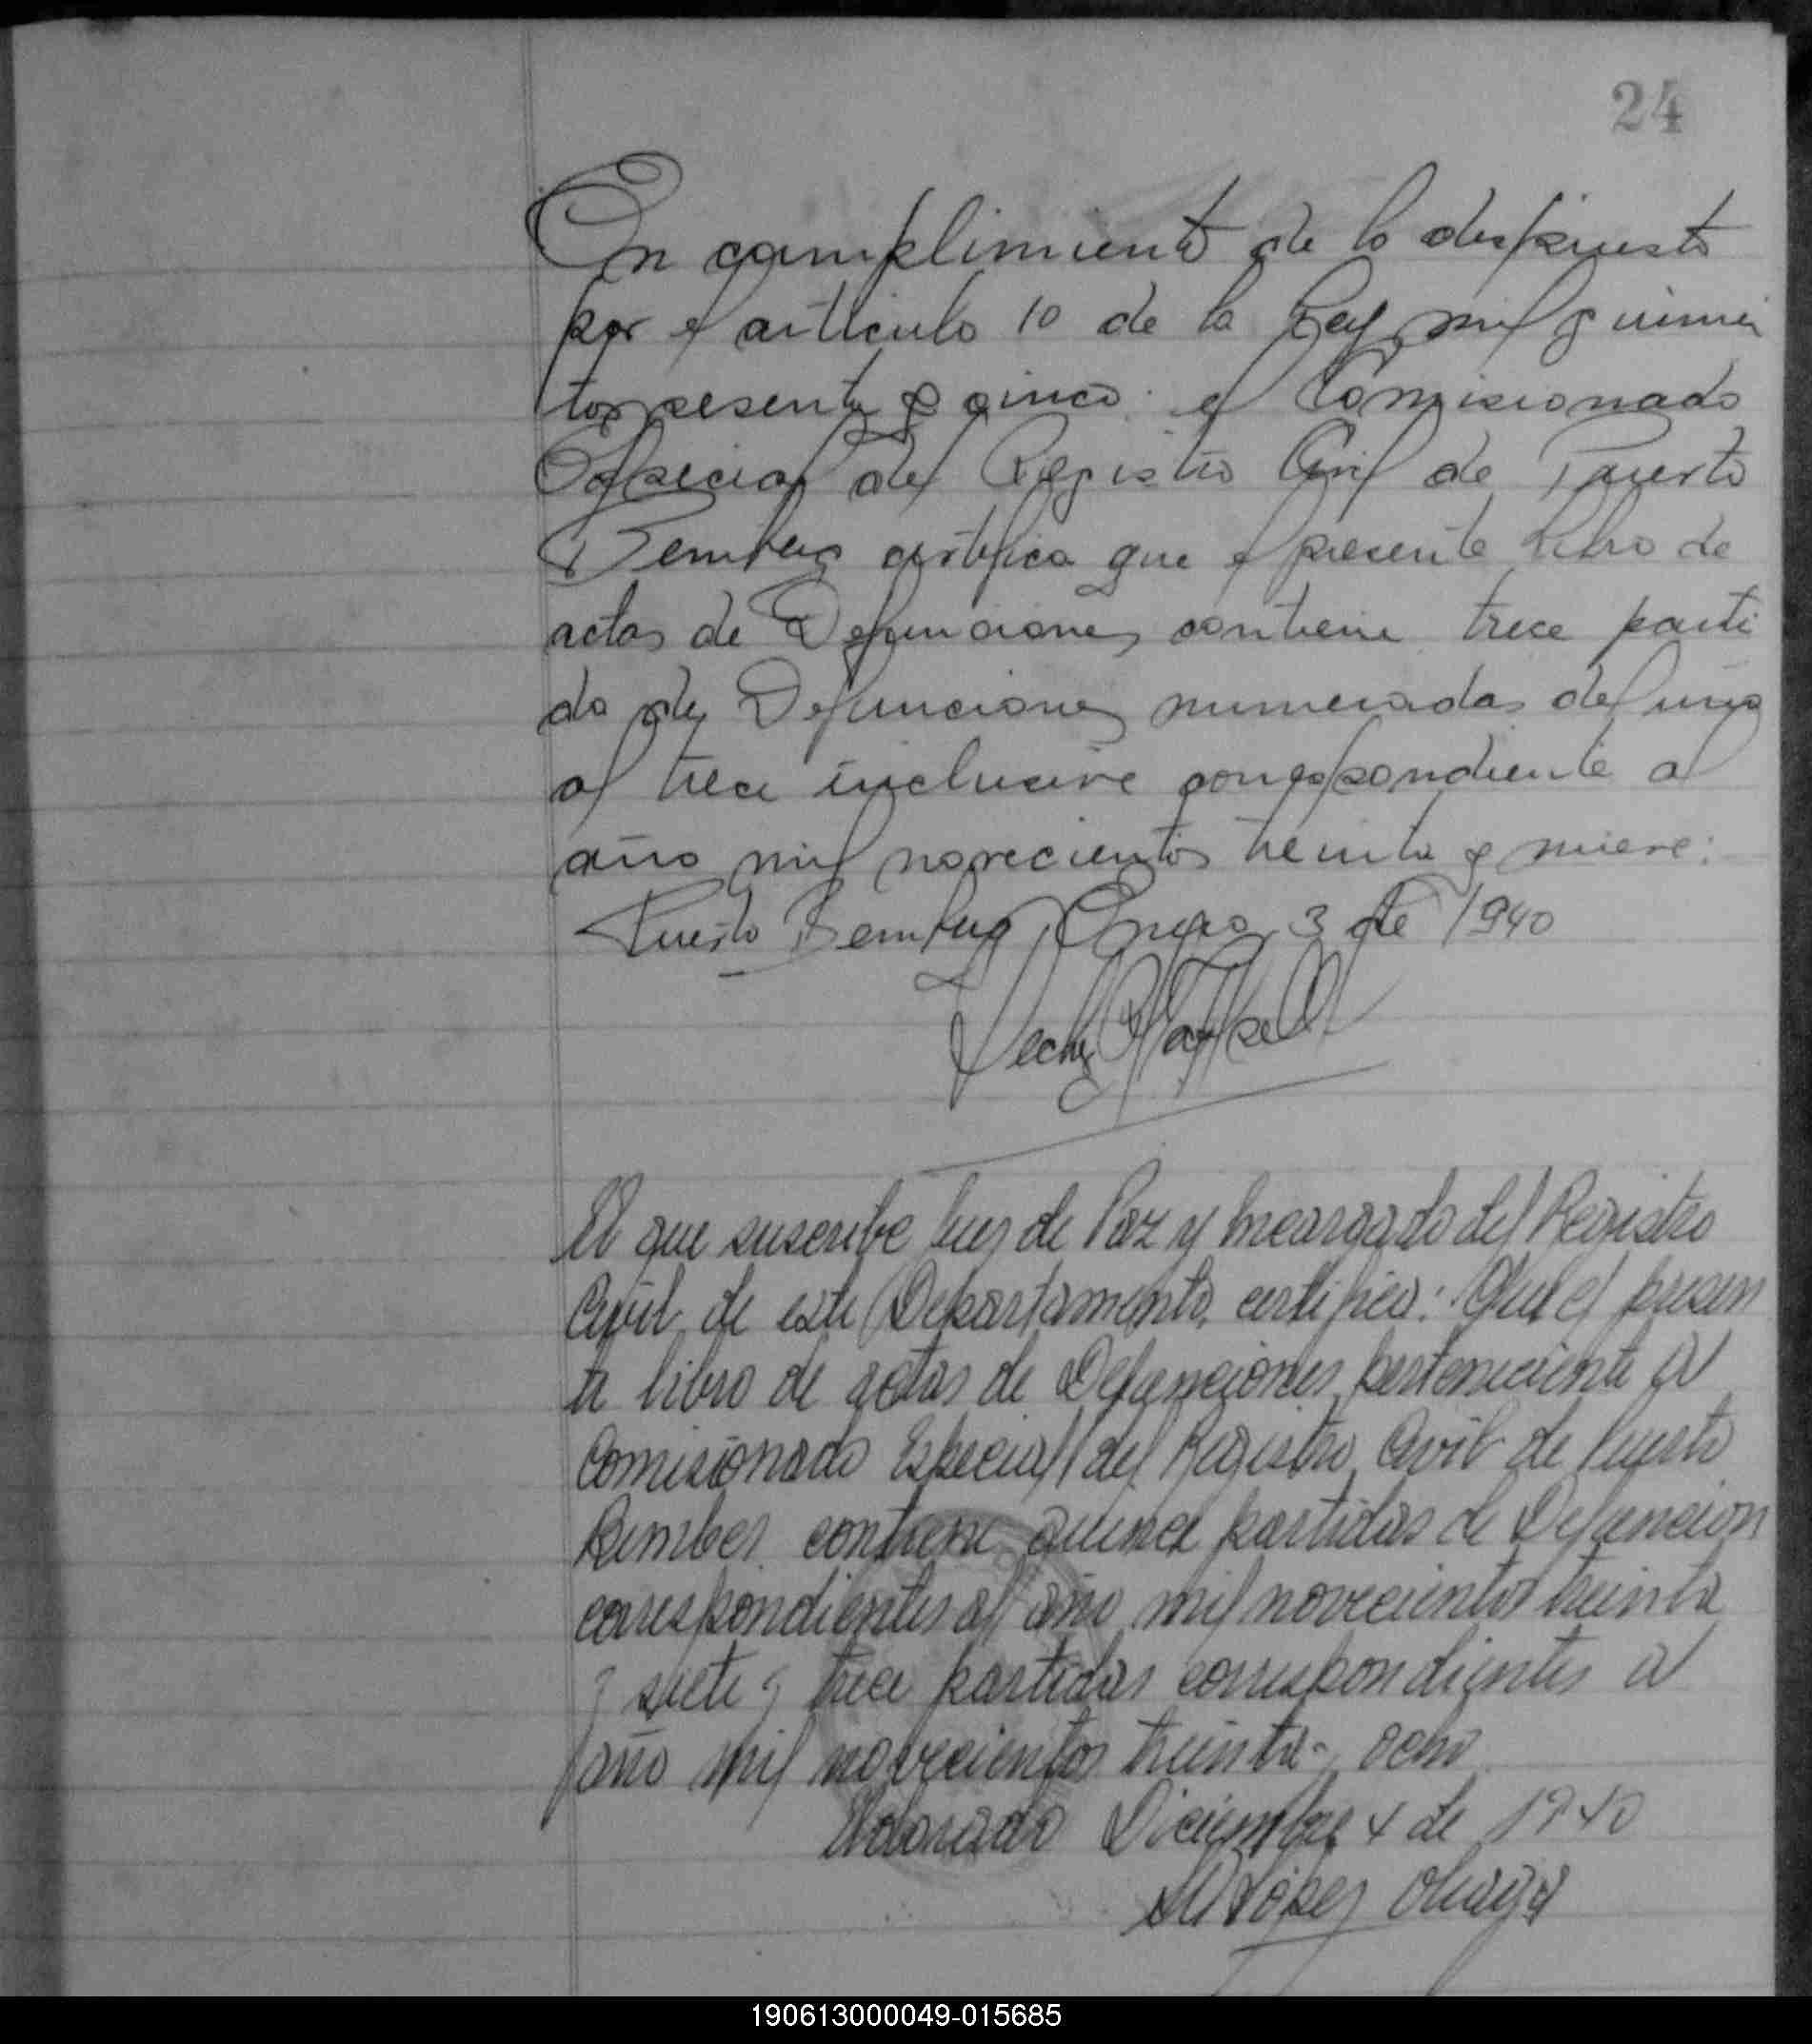 24
En cumplimiento de lo dispuesto
por el artículo 10 de la Ley mil quinien
tos sesenta y cinco: el Comisionado
Especial del Registro Civil de Puerto
Bemberg certifica que el presente Libro de
actas de Defunciones contiene trece parti
da de Defunciones numeradas del uno
al trece inclusive correspondiente al
año mil novecientos treinta y nueve:
Puerto Bemberg, Enero 3 de 1940
El que suscribe Juez de Paz y Encargado del Registro
Civil de este Departamento, certifica: Que el presen
te libro de actas de Defunciones perteneciente al
Comisionado Especial del Registro Civil de Puerto
Bemberg contiene quince partidas de Defuncion
correspondientes al año mil novecientos treinta
y siete y trece partidas correspondientes al
año mil novecientos treinta y ocho
Eldorado Diciembre 4 de 1940
López
190613000049-015685